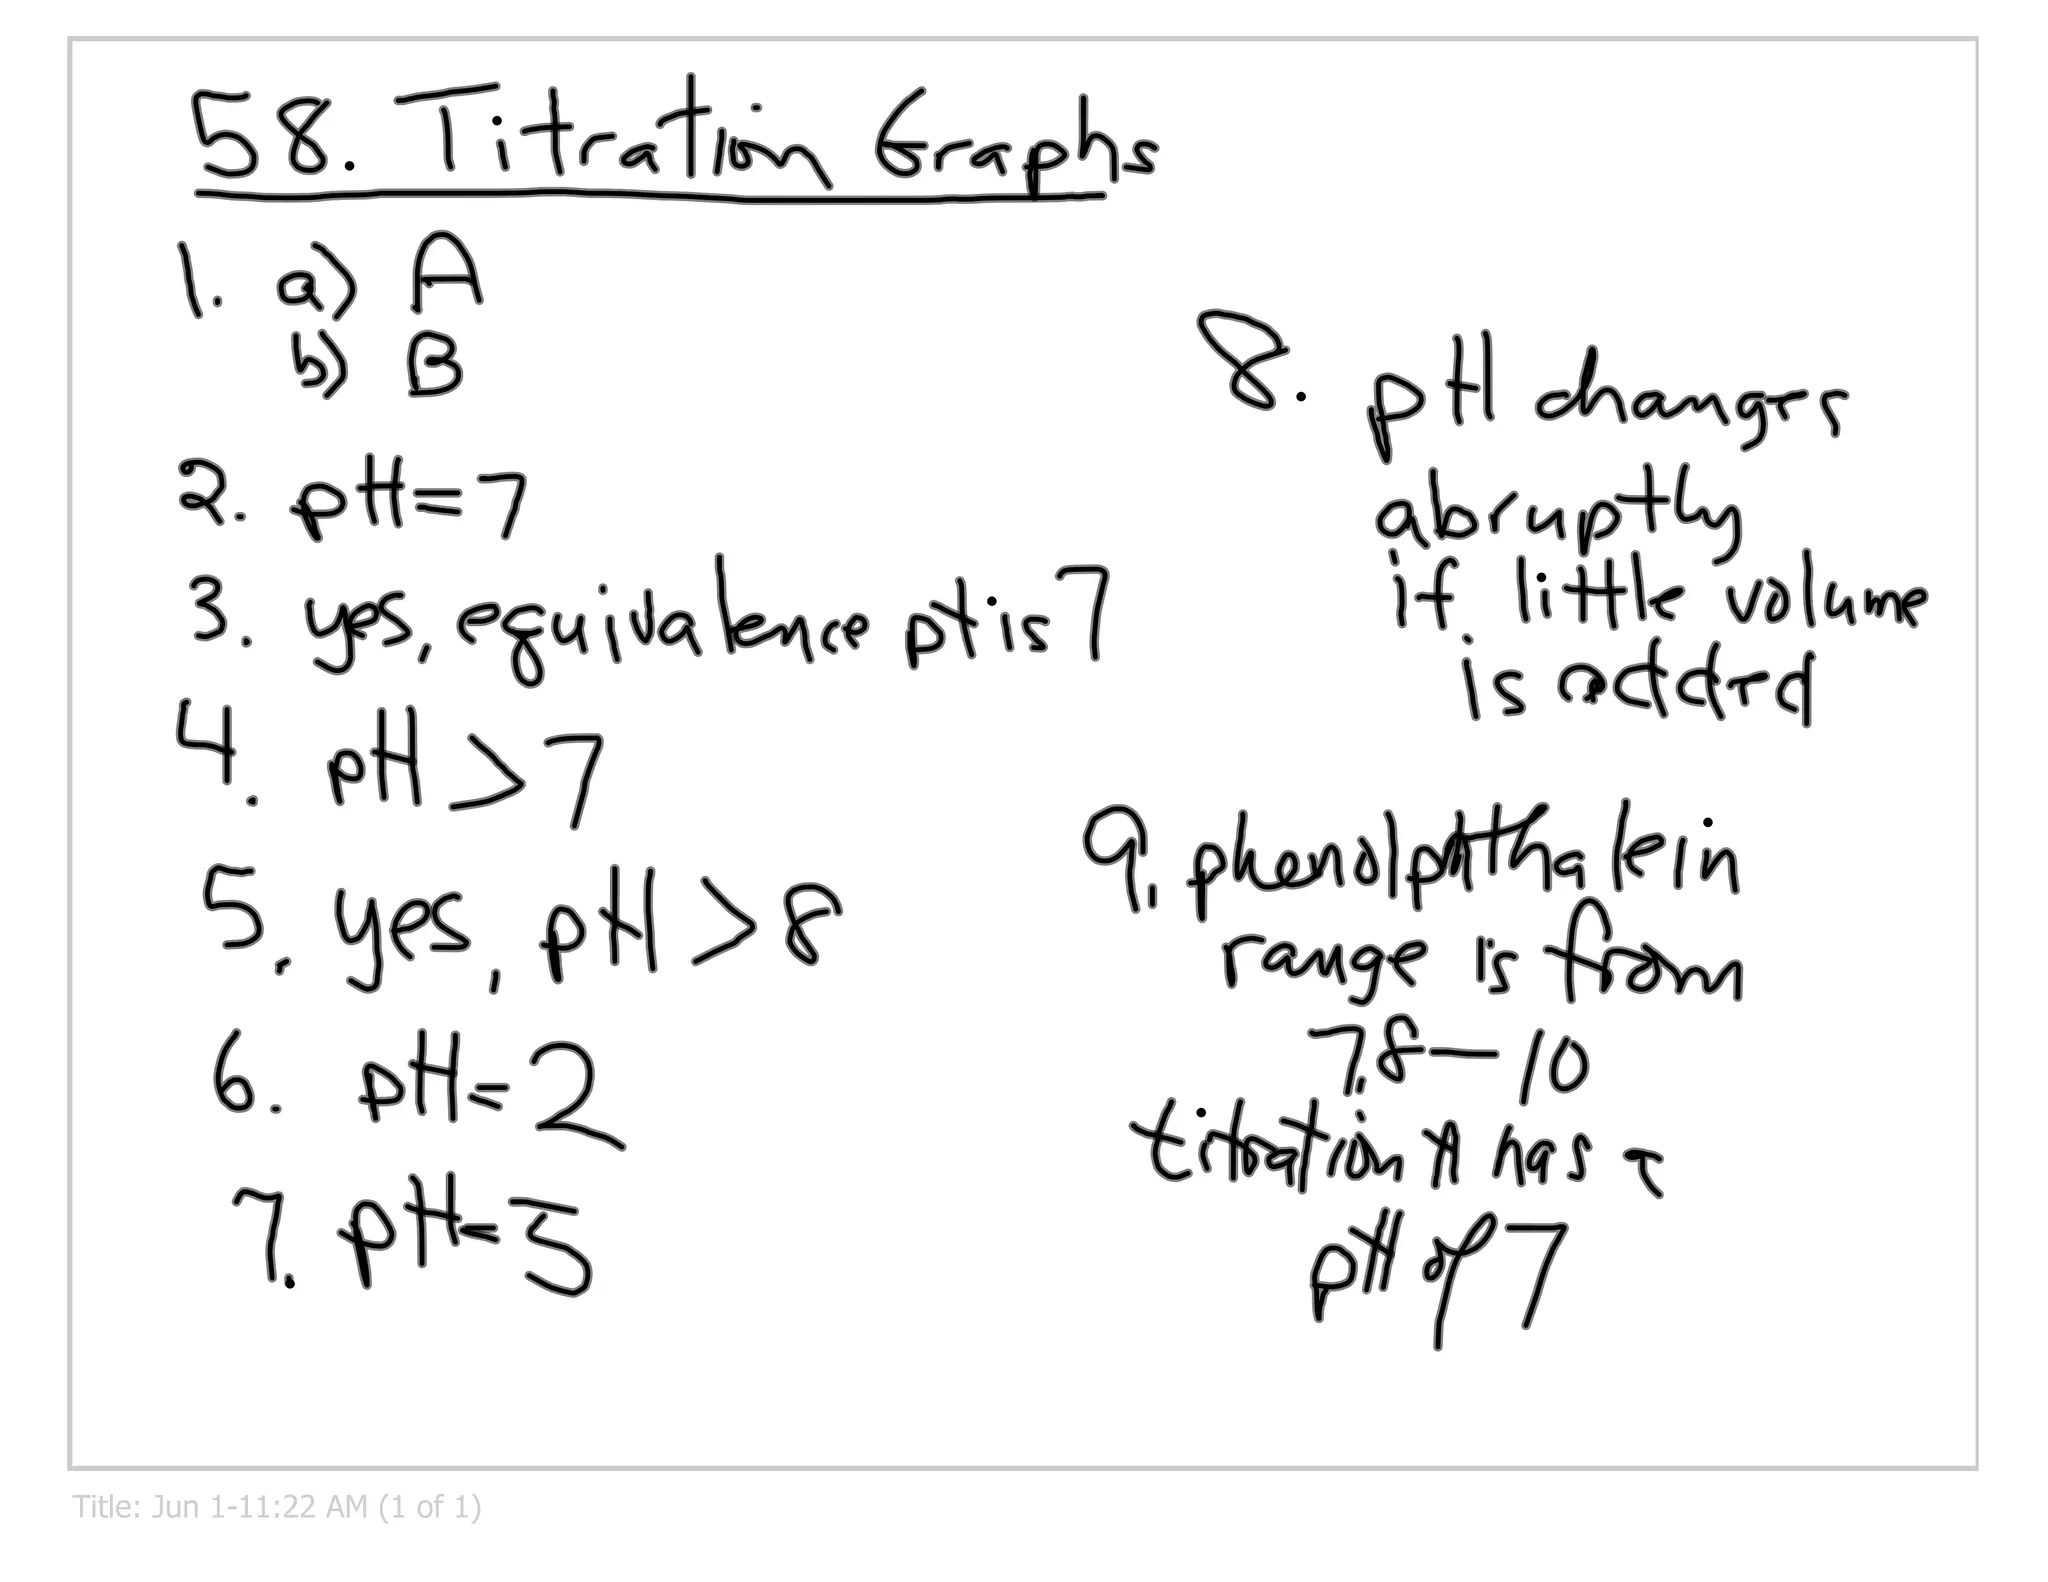 58. Titration Graphs
1. a) A
b) B
2. pH=7
3. yes, equivalence pt is 7
4. pH > 7
5. yes, pH > 8
6. pH = 2
7. pH = 5
8. pH changes
abruptly
if little volume
is added
9. phenolphthalein
range is from
7.8 — 10
titration A has a
pH of 7
Title: Jun 1-11:22 AM (1 of 1)